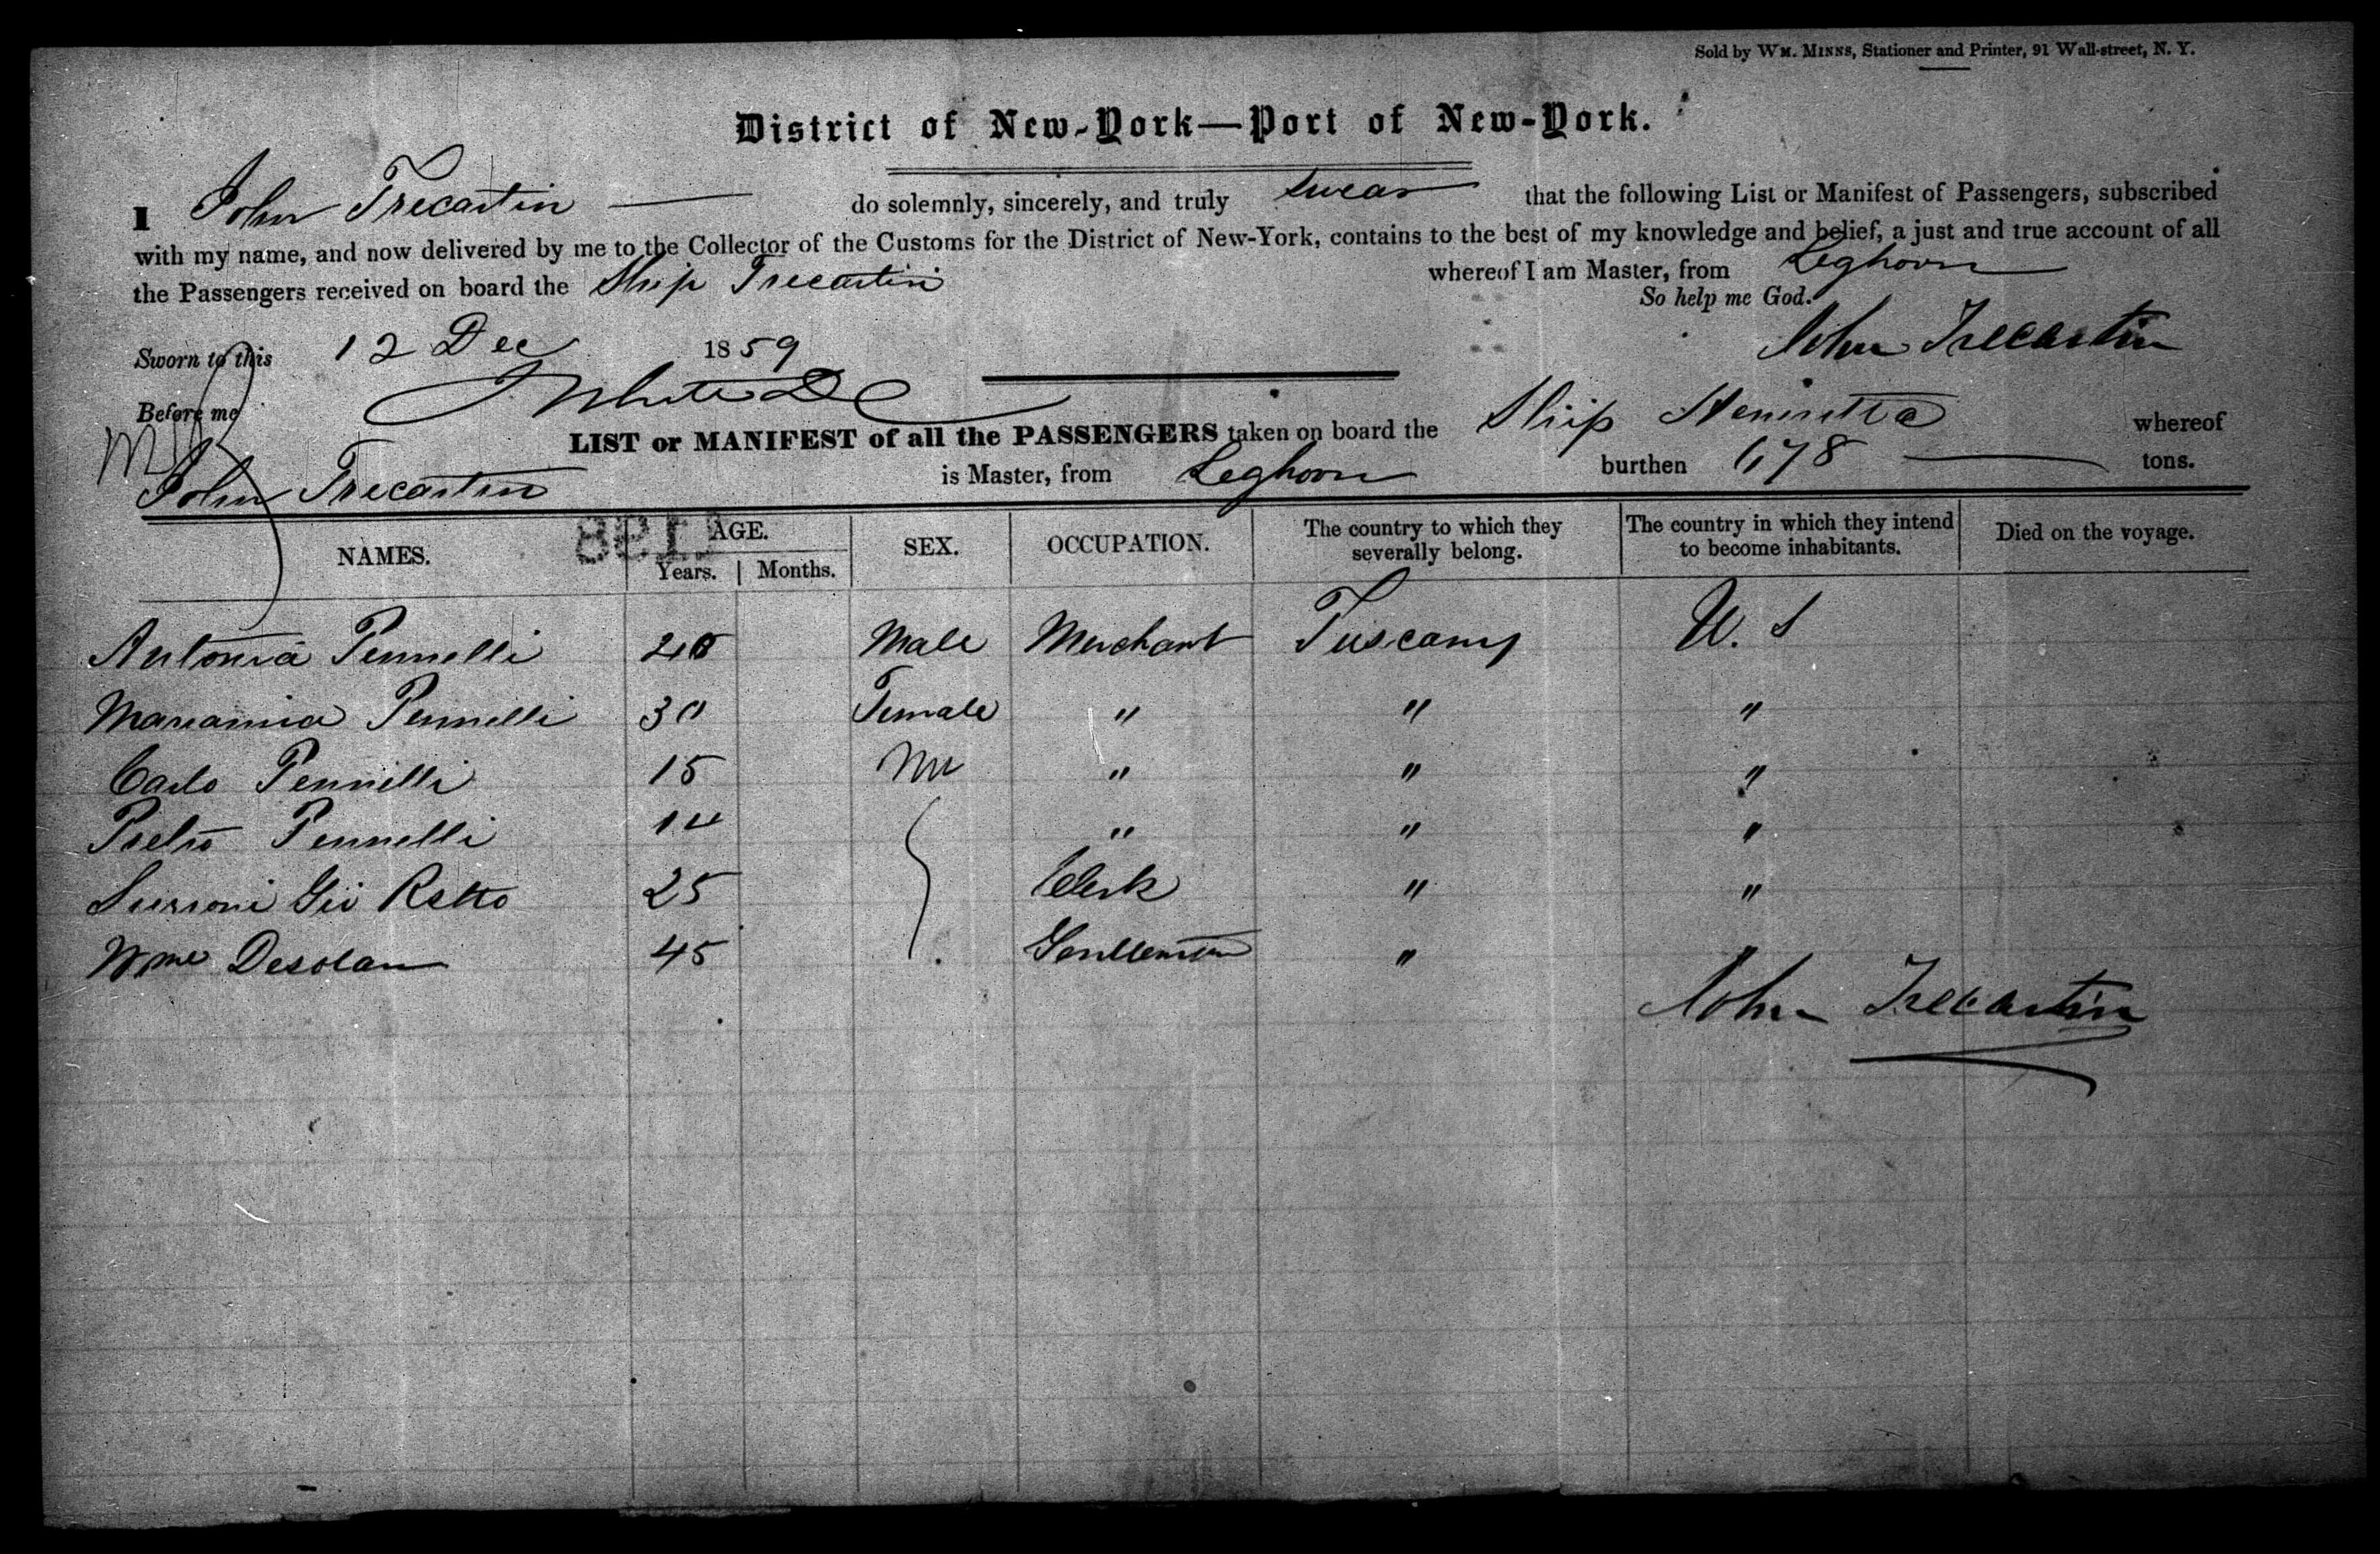 Sold by WM. MINNS, Stationer and Printer, 91 Wall-street, N. Y.
District of New-York—Port of New-York.
I John Trecartin do solemnly, sincerely, and truly swear that the following List or Manifest of Passengers, subscribed
with my name, and now delivered by me to the Collector of the Customs for the District of New-York, contains to the best of my knowledge and belief, a just and true account of all
the Passengers received on board the Ship Trecartin whereof I am Master, from Leghorn
So help me God.
Sworn to this 12 Dec 1859 John Trecartin
Before me
LIST or MANIFEST of all the PASSENGERS taken on board the Ship Henrietta whereof
John Trecartin is Master, from Leghorn burthen 678 tons.
NAMES. AGE. Years. Months. SEX. OCCUPATION. The country to which they severally belong. The country in which they intend to become inhabitants. Died on the voyage.
Antonia Pennelli Male Merchant Tuscany U. S
Marianna Pennelli 30 Female " " "
Carlo Pennilli 15 " " "
Pietro Pennelli 14 " " "
25 Clerk " "
Desolan 45 Gentleman "
John Trecartin